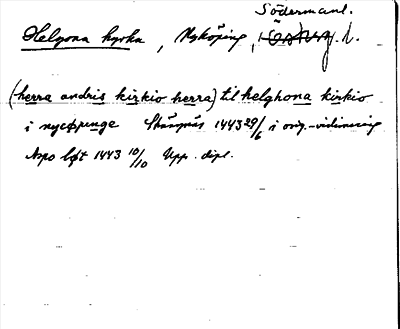 Södermanl.
Helgona kyrka, Nyköping, l.
(herra andris kirkio herra) til helghona kirkio
i nycøpunge Strängnäs 1443 29/6 i orig.-vidimering
Aspo løt 1443 10/10 Upp. dipl.